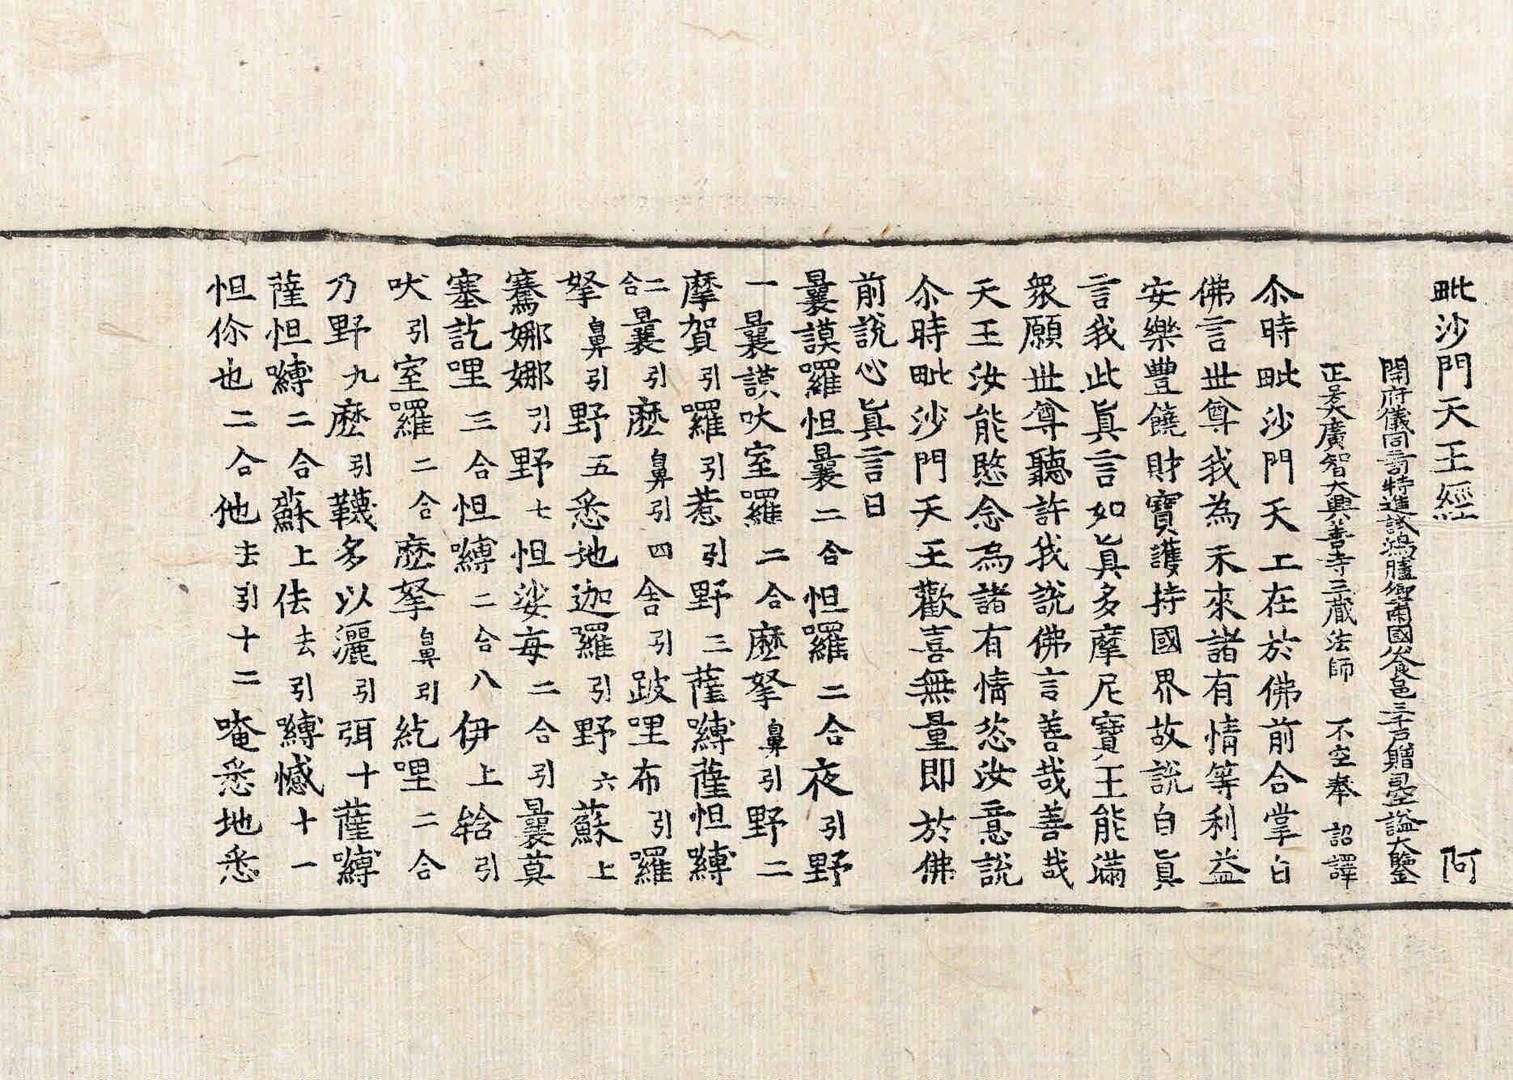 毗沙門天王經 阿
開府儀同三司特進試鴻臚卿肅國公食邑三千戶贈司空諡大鑒
正号大廣智大興善寺三藏法師 不空奉 詔譯
尒時毗沙門天王在於佛前合掌白
佛言世尊我為未來諸有情等利益
安樂豐饒財寶護持國界故說自真
言我此真言如真多摩尼寶王能滿
衆願世尊聽許我說佛言善哉善哉
天王汝能愍念為諸有情恣汝意說
尒時毗沙門天王歡喜無量即於佛
前說心真言曰
曩謨羅怛曩二合怛羅二合夜引野
一曩謨吠室羅二合麽拏鼻引野二
摩賀引羅引惹引野三薩嚩薩怛嚩
二合曩引麽鼻引四舍引跛哩布引羅
拏鼻引野五悉地迦羅引野六蘇上
騫娜娜引野七怛娑每二合引曩莫
塞訖哩三合怛嚩二合八伊上䩭引
吠引室羅二合麽拏鼻引紇哩二合
乃野九麽引韈多以灑引弭十薩嚩
薩怛嚩二合蘇上佉去引嚩憾十一
怛你也二合他去引十二唵悉地悉